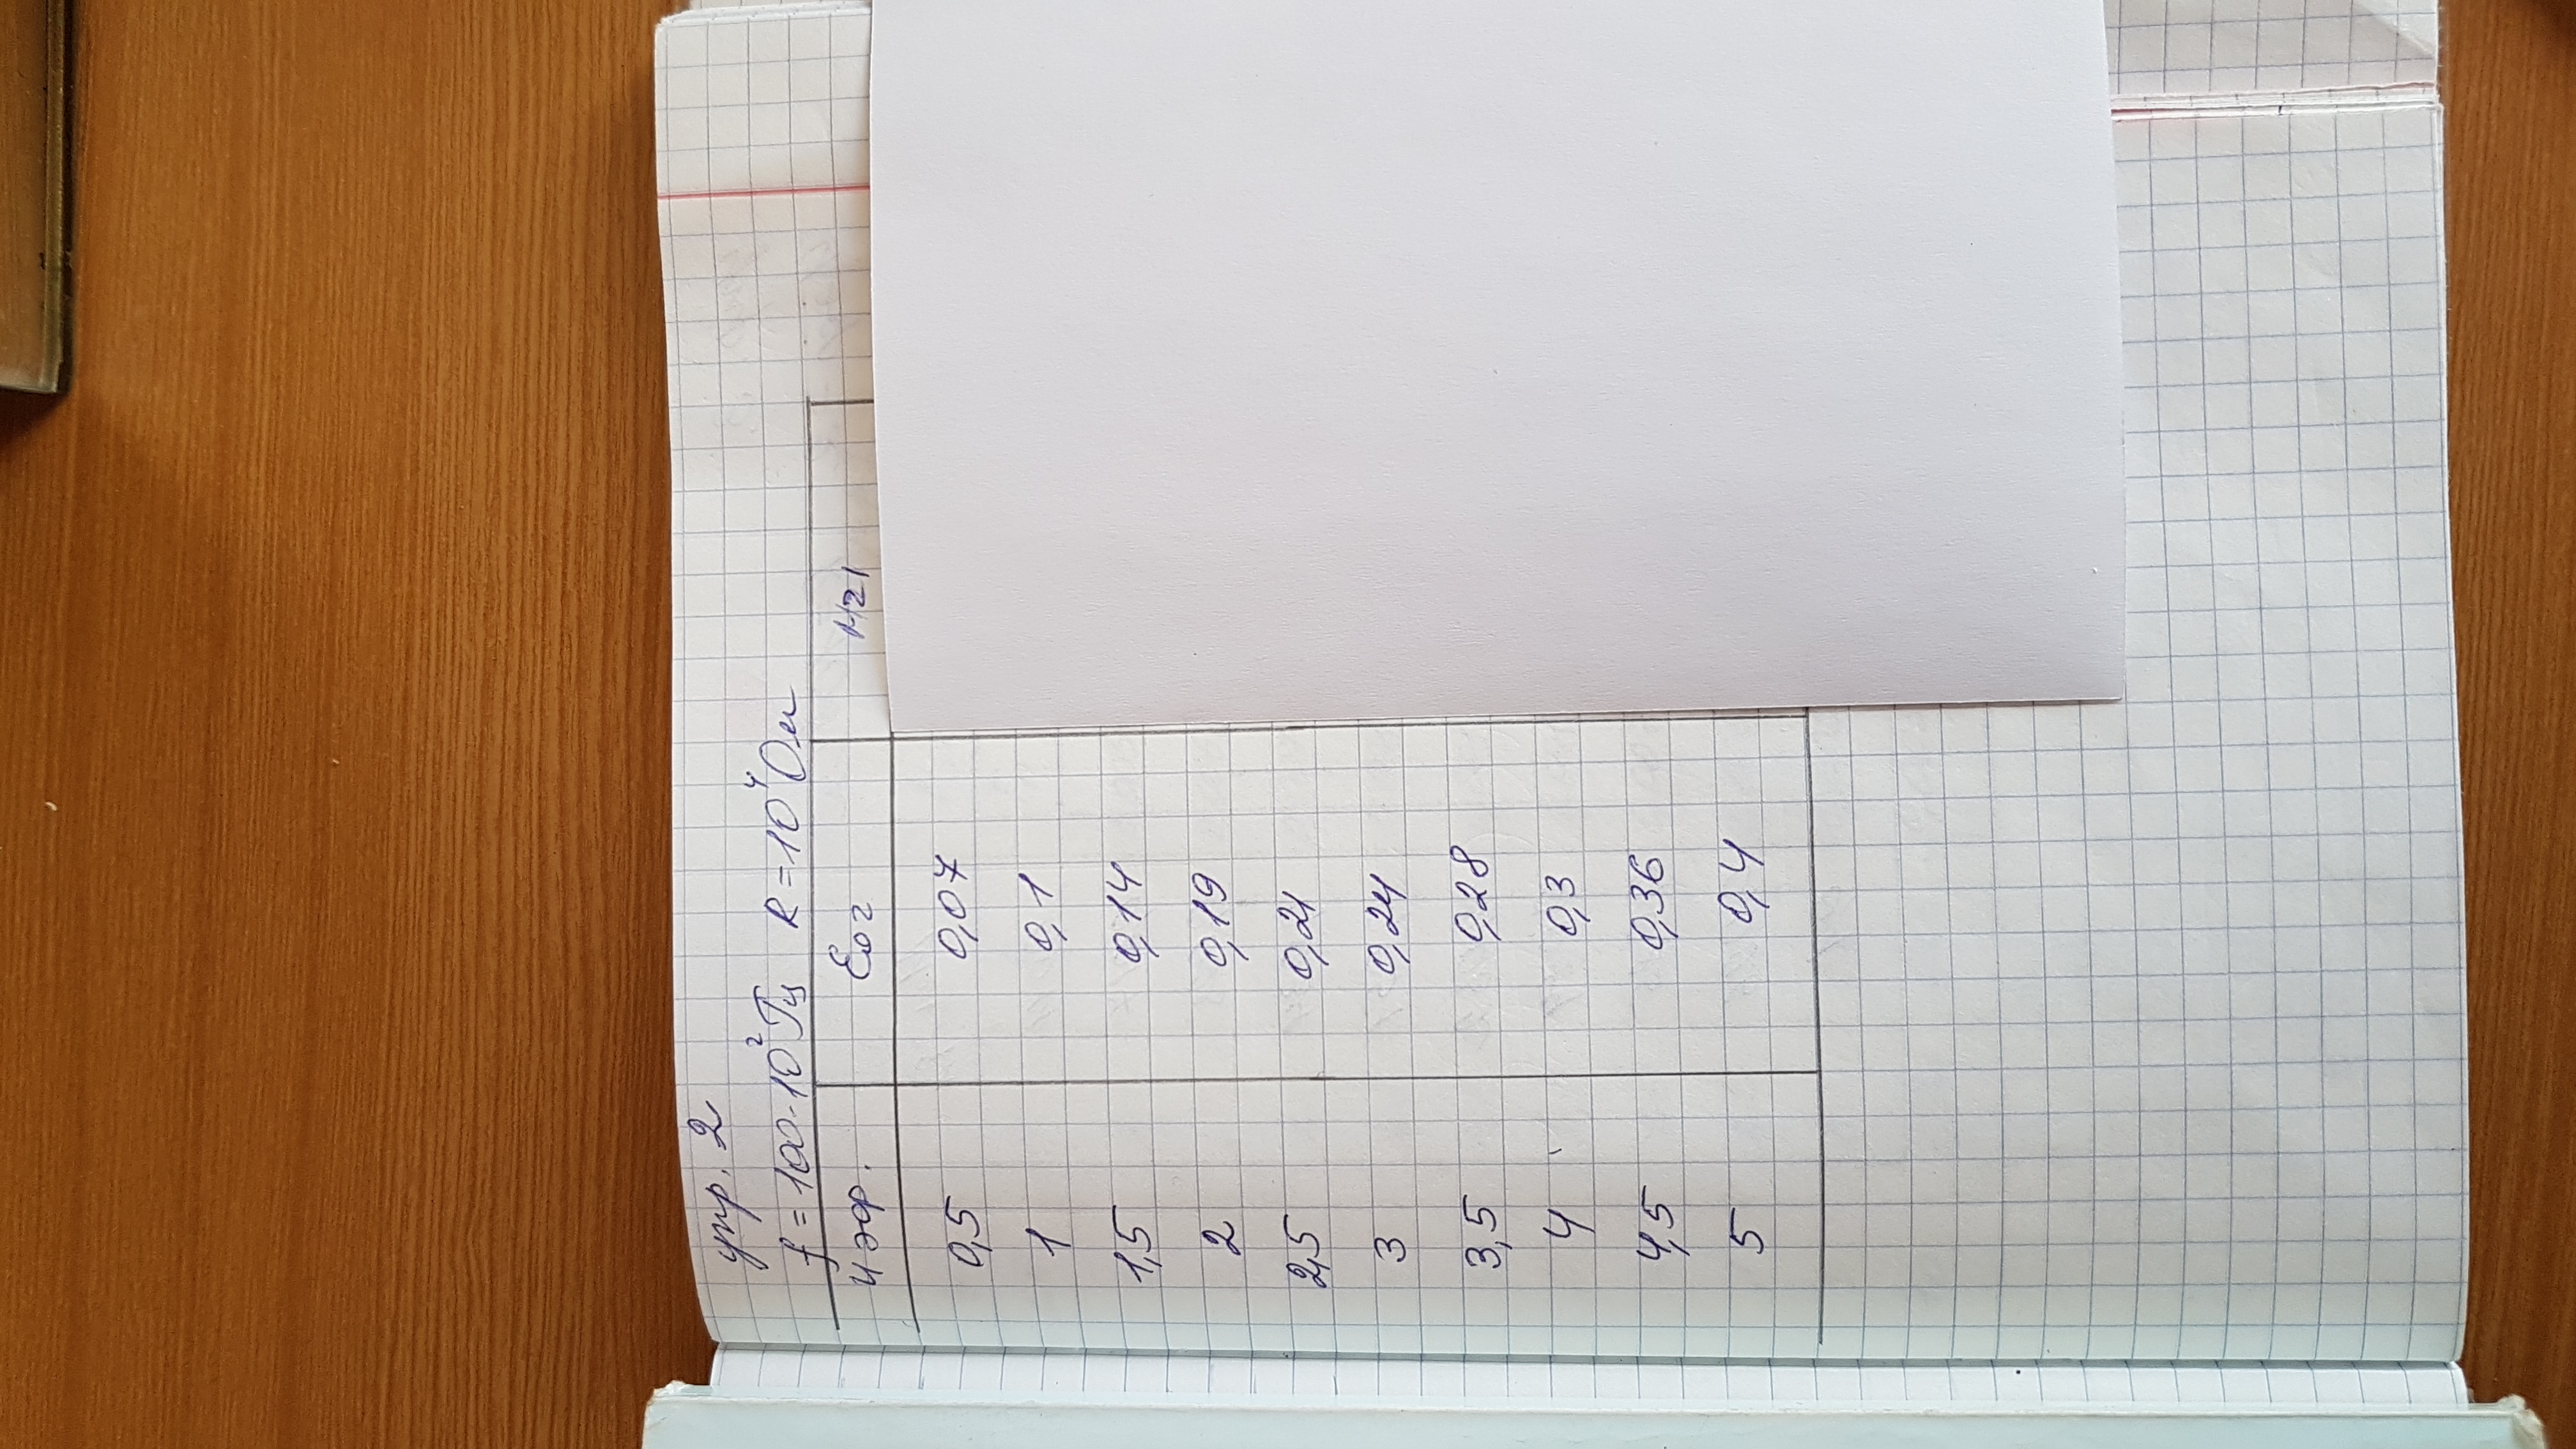 упр. 2
f = 100·10² Гц R = 10⁴ Ом
Uэф. E02 M21
0,5 0,07
1 0,1
1,5 0,14
2 0,19
2,5 0,21
3 0,24
3,5 0,28
4 0,3
4,5 0,36
5 0,4